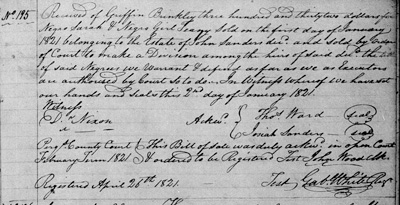 No. 195 Received of Griffin Brinkley three hundred and thirty two dollars for
Negro Sarah & Negro Girl Peggy Sold on the first day of January
1821 belonging to the Estate of John Sanders decd. and sold by order
of Court to make a Division among the heirs of said decd. the title
of said Negroes we Warrant & Defend as far as we as Executors
are authorised by Court So to do. In Witness Whereof we have set
our hands and Seals this 2nd day of January 1821.
Witness
D. Nixon Ackd. Thos. Ward (seal)
Josiah Sanders (seal)
Perqs. County Court This Bill of sale was duly ackd. in open Court
February Term 1821 & ordered to be Registered Test John Wood Clk.
Registered April 26th 1821. Test, Gab. White Regr.